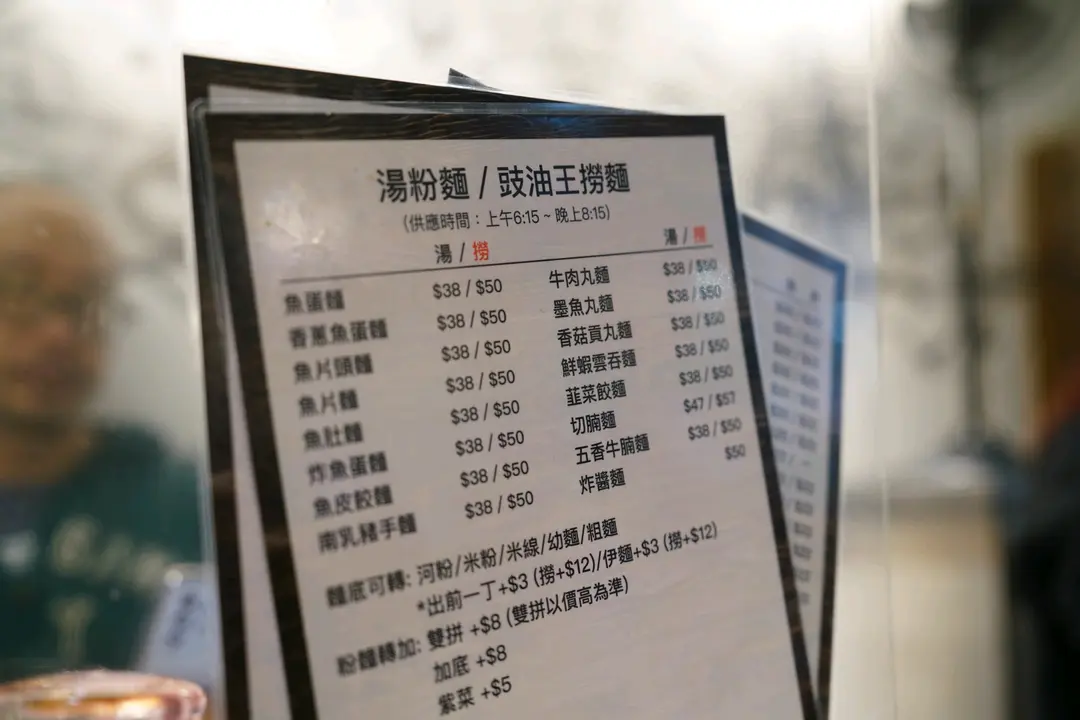 湯粉麵 / 豉油王撈麵
(供應時間：上午6:15 ~ 晚上8:15)
湯 / 撈 湯 / 撈
魚蛋麵 $38 / $50 牛肉丸麵 $38 / $50
香蔥魚蛋麵 $38 / $50 墨魚丸麵 $38 / $50
魚片頭麵 $38 / $50 香菇貢丸麵 $38 / $50
魚片麵 $38 / $50 鮮蝦雲吞麵 $38 / $50
魚肚麵 $38 / $50 韮菜餃麵 $38 / $50
炸魚蛋麵 $38 / $50 切腩麵 $47 / $57
魚皮餃麵 $38 / $50 五香牛腩麵 $38 / $50
南乳豬手麵 $38 / $50 炸醬麵 $50
麵底可轉: 河粉/米粉/米線/幼麵/粗麵
*出前一丁+$3 (撈+$12)/伊麵+$3 (撈+$12)
粉麵轉加: 雙拼 +$8 (雙拼以價高為準)
加底 +$8
紫菜 +$5